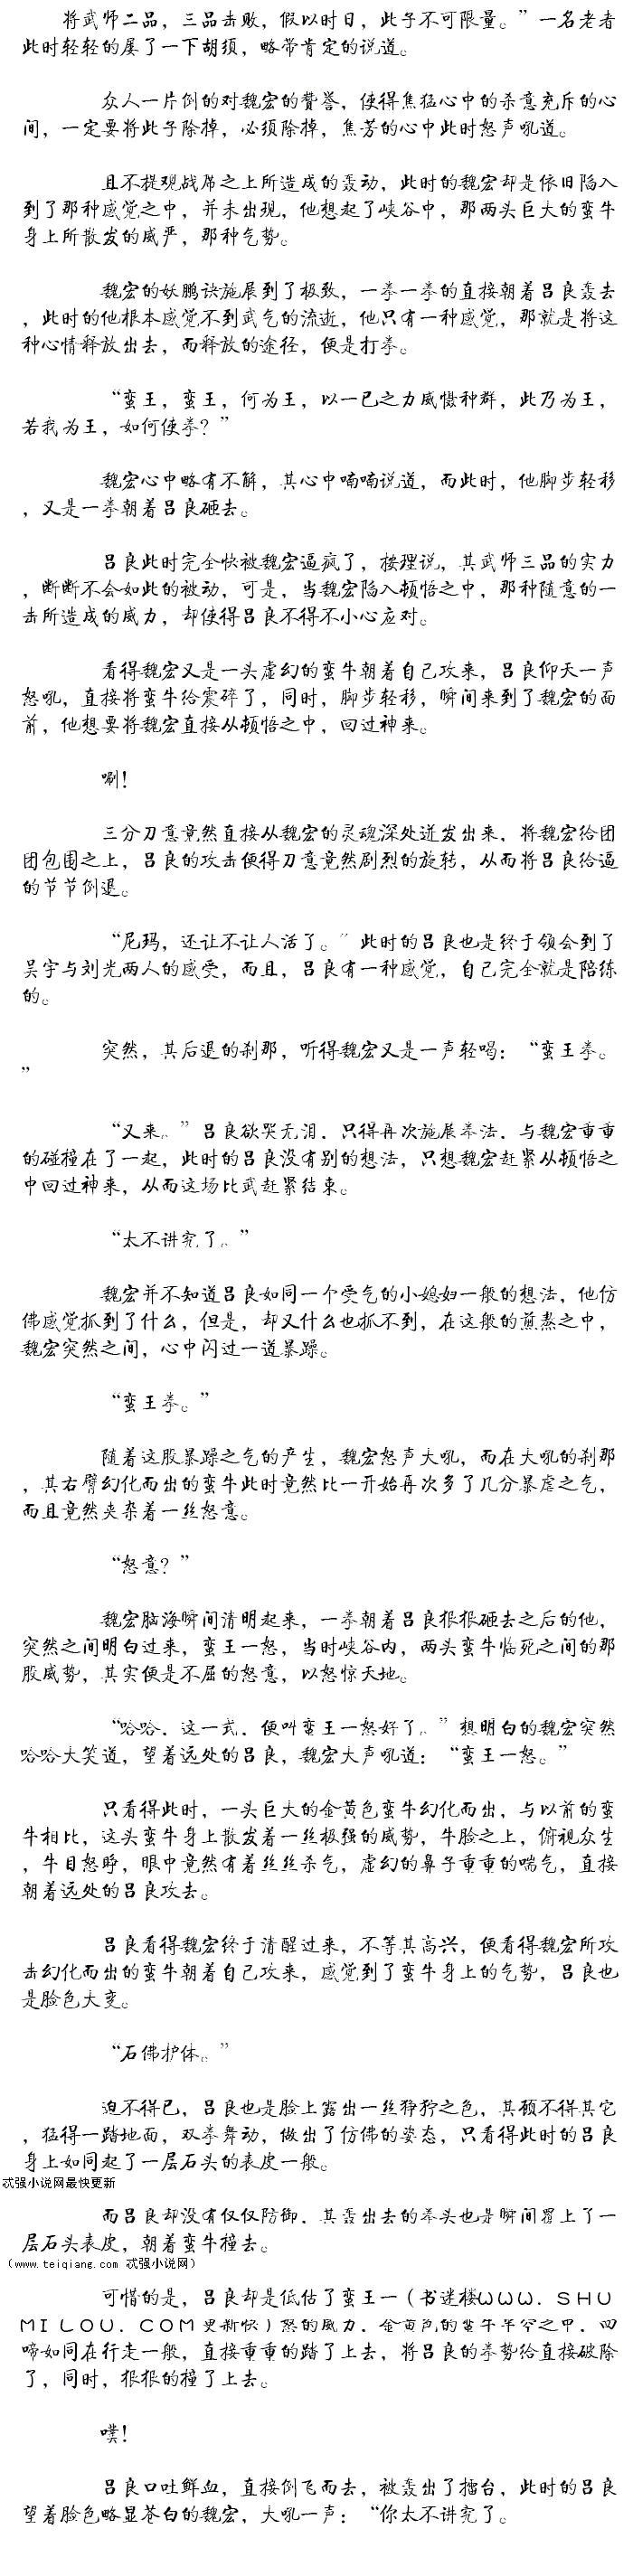 将武师二品，三品击败，假以时日，此子不可限量。”一名老者
此时轻轻的屡了一下胡须，略带肯定的说道。
众人一片倒的对魏宏的赞誉，使得焦猛心中的杀意充斥的心
间，一定要将此子除掉，必须除掉，焦芳的心中此时怒声吼道。
且不提观战席之上所造成的轰动，此时的魏宏却是依旧陷入
到了那种感觉之中，并未出现，他想起了峡谷中，那两头巨大的蛮牛
身上所散发的威严，那种气势。
魏宏的妖鹏诀施展到了极致，一拳一拳的直接朝着吕良轰去
，此时的他根本感觉不到武气的流逝，他只有一种感觉，那就是将这
种心情释放出去，而释放的途径，便是打拳。
“蛮王，蛮王，何为王，以一己之力威慑种群，此乃为王，
若我为王，如何使拳？”
魏宏心中略有不解，其心中喃喃说道，而此时，他脚步轻移
，又是一拳朝着吕良砸去。
吕良此时完全快被魏宏逼疯了，按理说，其武师三品的实力
，断断不会如此的被动，可是，当魏宏陷入顿悟之中，那种随意的一
击所造成的威力，却使得吕良不得不小心应对。
看得魏宏又是一头虚幻的蛮牛朝着自己攻来，吕良仰天一声
怒吼，直接将蛮牛给震碎了，同时，脚步轻移，瞬间来到了魏宏的面
前，他想要将魏宏直接从顿悟之中，回过神来。
唰！
三分刀意竟然直接从魏宏的灵魂深处迸发出来，将魏宏给团
团包围之上，吕良的攻击便得刀意竟然剧烈的旋转，从而将吕良给逼
的节节倒退。
“尼玛，还让不让人活了。”此时的吕良也是终于领会到了
吴宇与刘光两人的感受，而且，吕良有一种感觉，自己完全就是陪练
的。
突然，其后退的刹那，听得魏宏又是一声轻喝：“蛮王拳。
”
“又来。”吕良欲哭无泪，只得再次施展拳法，与魏宏重重
的碰撞在了一起，此时的吕良没有别的想法，只想魏宏赶紧从顿悟之
中回过神来，从而这场比武赶紧结束。
“太不讲究了。”
魏宏并不知道吕良如同一个受气的小媳妇一般的想法，他仿
佛感觉抓到了什么，但是，却又什么也抓不到，在这般的煎熬之中，
魏宏突然之间，心中闪过一道暴躁。
“蛮王拳。”
随着这股暴躁之气的产生，魏宏怒声大吼，而在大吼的刹那
，其右臂幻化而出的蛮牛此时竟然比一开始再次多了几分暴虐之气，
而且竟然夹杂着一丝怒意。
“怒意？”
魏宏脑海瞬间清明起来，一拳朝着吕良狠狠砸去之后的他，
突然之间明白过来，蛮王一怒，当时峡谷内，两头蛮牛临死之间的那
股威势，其实便是不屈的怒意，以怒惊天地。
“哈哈，这一式，便叫蛮王一怒好了。”想明白的魏宏突然
哈哈大笑道，望着远处的吕良，魏宏大声吼道：“蛮王一怒。”
只看得此时，一头巨大的金黄色蛮牛幻化而出，与以前的蛮
牛相比，这头蛮牛身上散发着一丝极强的威势，牛脸之上，俯视众生
，牛目怒睁，眼中竟然有着丝丝杀气，虚幻的鼻子重重的喘气，直接
朝着远处的吕良攻去。
吕良看得魏宏终于清醒过来，不等其高兴，便看得魏宏所攻
击幻化而出的蛮牛朝着自己攻来，感觉到了蛮牛身上的气势，吕良也
是脸色大变。
“石佛护体。”
迫不得已，吕良也是脸上露出一丝狰狞之色，其顾不得其它
，猛得一踏地面，双拳舞动，做出了仿佛的姿态，只看得此时的吕良
身上如同起了一层石头的表皮一般。
忒强小说网最快更新
而吕良却没有仅仅防御，其轰出去的拳头也是瞬间覆上了一
层石头表皮，朝着蛮牛撞去。
（www.teiqiang.com 忒强小说网）
可惜的是，吕良却是低估了蛮王一（书迷楼ＷＷＷ．ＳＨＵ
ＭＩＬＯＵ．ＣＯＭ更新快）怒的威力，金黄色的蛮牛半空之中，四
啼如同在行走一般，直接重重的踏了上去，将吕良的拳势给直接破除
了，同时，狠狠的撞了上去。
噗！
吕良口吐鲜血，直接倒飞而去，被轰出了擂台，此时的吕良
望着脸色略显苍白的魏宏，大吼一声：“你太不讲究了。